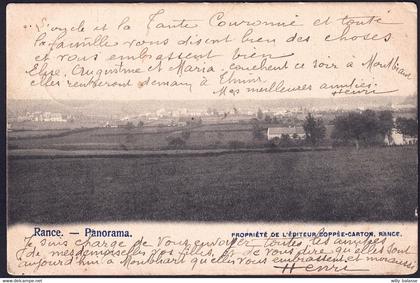 L'oncle et la Tante Couronné et toute
la famille vous disent bien des choses
et vous embrassent bien
Elise, Augustine et Maria couchent ce soir à Montbliart
elles rentreront demain à Thuin
Mes meilleures amitiés. Henri
Rance. — Panorama.
PROPRIÉTÉ DE L'ÉDITEUR COPPÉE-CARTON, RANCE.
Je suis chargé de vous envoyer toutes les amitiés
de mesdemoiselles vos filles, qui de vous
aujourd'hui à Montbliart qu'elles vous embrassent et moi
Henri
willy balasse